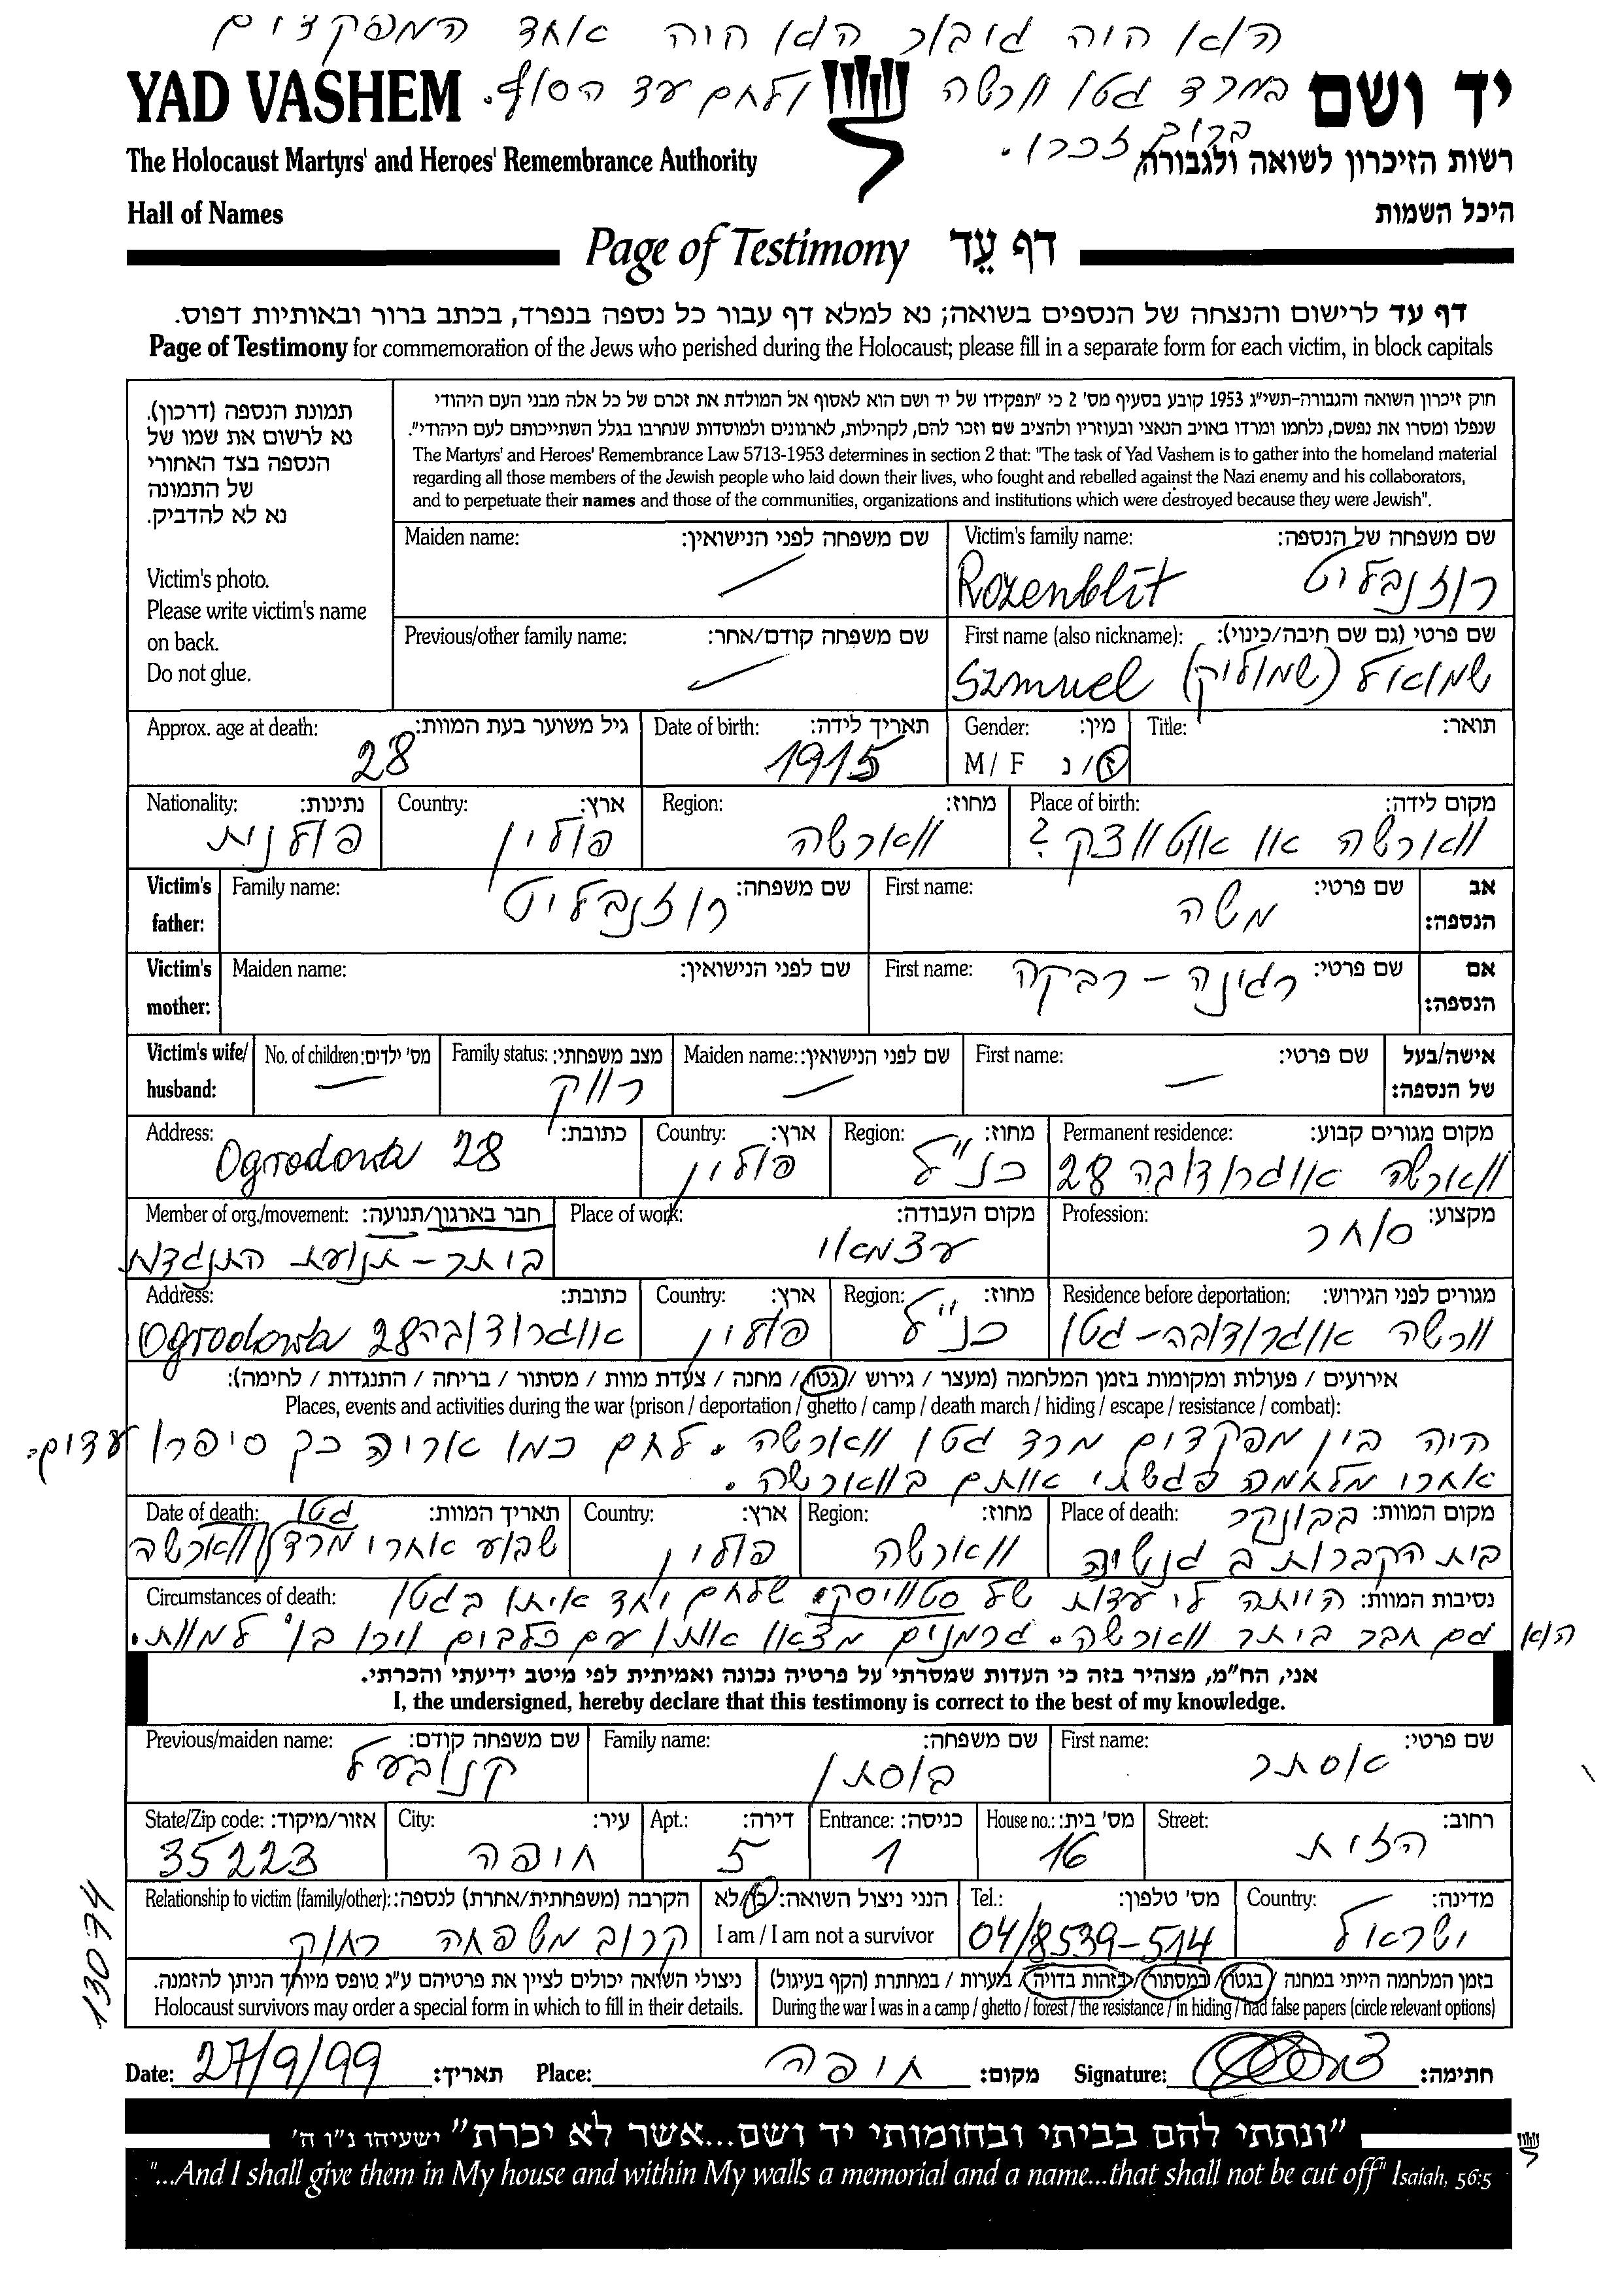 הוא היה גיבור הוא היה אחד המפקדים
במרד גטו וורשה ולחם עד הסוף.
ברוך זכרו.
YAD VASHEM יד ושם
The Holocaust Martyrs' and Heroes' Remembrance Authority רשות הזיכרון לשואה ולגבורה
Hall of Names היכל השמות
Page of Testimony דף עֵד
דף עד לרישום והנצחה של הנספים בשואה; נא למלא דף עבור כל נספה בנפרד, בכתב ברור ובאותיות דפוס.
Page of Testimony for commemoration of the Jews who perished during the Holocaust; please fill in a separate form for each victim, in block capitals
תמונת הנספה (דרכון).
נא לרשום את שמו של
הנספה בצד האחורי
של התמונה
נא לא להדביק.
Victim's photo.
Please write victim's name
on back.
Do not glue.
חוק זיכרון השואה והגבורה-תשי"ג 1953 קובע בסעיף מס' 2 כי "תפקידו של יד ושם הוא לאסוף אל המולדת את זכרם של כל אלה מבני העם היהודי
שנפלו ומסרו את נפשם, נלחמו ומרדו באויב הנאצי ובעוזריו ולהציב שם וזכר להם, לקהילות, לארגונים ולמוסדות שנחרבו בגלל השתייכותם לעם היהודי".
The Martyrs' and Heroes' Remembrance Law 5713-1953 determines in section 2 that: "The task of Yad Vashem is to gather into the homeland material
regarding all those members of the Jewish people who laid down their lives, who fought and rebelled against the Nazi enemy and his collaborators,
and to perpetuate their names and those of the communities, organizations and institutions which were destroyed because they were Jewish".
Maiden name: שם משפחה לפני הנישואין: Victim's family name: שם משפחה של הנספה:
Rozenblit רוזנבליט
Previous/other family name: שם משפחה קודם/אחר: First name (also nickname): שם פרטי (גם שם חיבה/כינוי):
Szmuel שמואל (שמוליק)
Approx. age at death: גיל משוער בעת המוות: Date of birth: תאריך לידה: Gender: מין: Title: תואר:
28 1915 M / F ז / נ
Nationality: נתינות: Country: ארץ: Region: מחוז: Place of birth: מקום לידה:
פולנית פולין ווארשה ווארשה או אוטווצק ?
Victim's father: Family name: שם משפחה: First name: שם פרטי: אב הנספה:
רוזנבליט משה
Victim's mother: Maiden name: שם לפני הנישואין: First name: שם פרטי: אם הנספה:
רגינה - רבקה
Victim's wife/ husband: No. of children: מס' ילדים: Family status: מצב משפחתי: Maiden name: שם לפני הנישואין: First name: שם פרטי: אישה/בעל של הנספה:
רווק
Address: כתובת: Country: ארץ: Region: מחוז: Permanent residence: מקום מגורים קבוע:
Ogrodowa 28 פולין כנ"ל ווארשה אוגרודובה 28
Member of org./movement: חבר בארגון/תנועה: Place of work: מקום העבודה: Profession: מקצוע:
ביתר - תנועת התנגדות עצמאי סוחר
Address: כתובת: Country: ארץ: Region: מחוז: Residence before deportation: מגורים לפני הגירוש:
Ogrodowa 28 אוגרודובה פולין כנ"ל וורשה אוגרודובה - גטו
אירועים / פעולות ומקומות בזמן המלחמה (מעצר / גירוש / גטו / מחנה / צעדת מוות / מסתור / בריחה / התנגדות / לחימה):
Places, events and activities during the war (prison / deportation / ghetto / camp / death march / hiding / escape / resistance / combat):
היה בין מפקדים מרד גטו ווארשה. לחם כמו אריה כך סיפרו עדים.
אחרי מלחמה פגשתי אותם בווארשה.
Date of death: תאריך המוות: Country: ארץ: Region: מחוז: Place of death: מקום המוות:
שבוע אחרי מרד גטו ווארשה פולין ווארשה בבונקר
בית הקברות ב גנשיה
Circumstances of death: נסיבות המוות: הייתה לי עדות של סטוויסקי שלחם יחד איתו בגטו
הוא גם חבר ביתר ווארשה. גרמנים מצאו אותו עם כלבים וירו בו למוות.
אני, הח"מ, מצהיר בזה כי העדות שמסרתי על פרטיה נכונה ואמיתית לפי מיטב ידיעתי והכרתי.
I, the undersigned, hereby declare that this testimony is correct to the best of my knowledge.
Previous/maiden name: שם משפחה קודם: Family name: שם משפחה: First name: שם פרטי:
קנובעל בוסתן אסתר
State/Zip code: אזור/מיקוד: City: עיר: Apt.: דירה: Entrance: כניסה: House no.: מס' בית: Street: רחוב:
35223 חיפה 5 1 16 הזית
Relationship to victim (family/other): הקרבה (משפחתית/אחרת) לנספה: הנני ניצול השואה: כן/לא Tel.: מס' טלפון: Country: מדינה:
קרוב משפחה רחוק I am / I am not a survivor 04/8539-514 ישראל
13074
ניצולי השואה יכולים לציין את פרטיהם ע"ג טופס מיוחד הניתן להזמנה. בזמן המלחמה הייתי במחנה / בגטו / במסתור / בזהות בדויה / ביערות / במחתרת (הקף בעיגול)
Holocaust survivors may order a special form in which to fill in their details. During the war I was in a camp / ghetto / forest / the resistance / in hiding / had false papers (circle relevant options)
Date: 27/9/99 תאריך: Place: חיפה מקום: Signature: חתימה:
"ונתתי להם בביתי ובחומותי יד ושם...אשר לא יכרת" ישעיהו נ"ו ה'
"...And I shall give them in My house and within My walls a memorial and a name...that shall not be cut off" Isaiah, 56:5